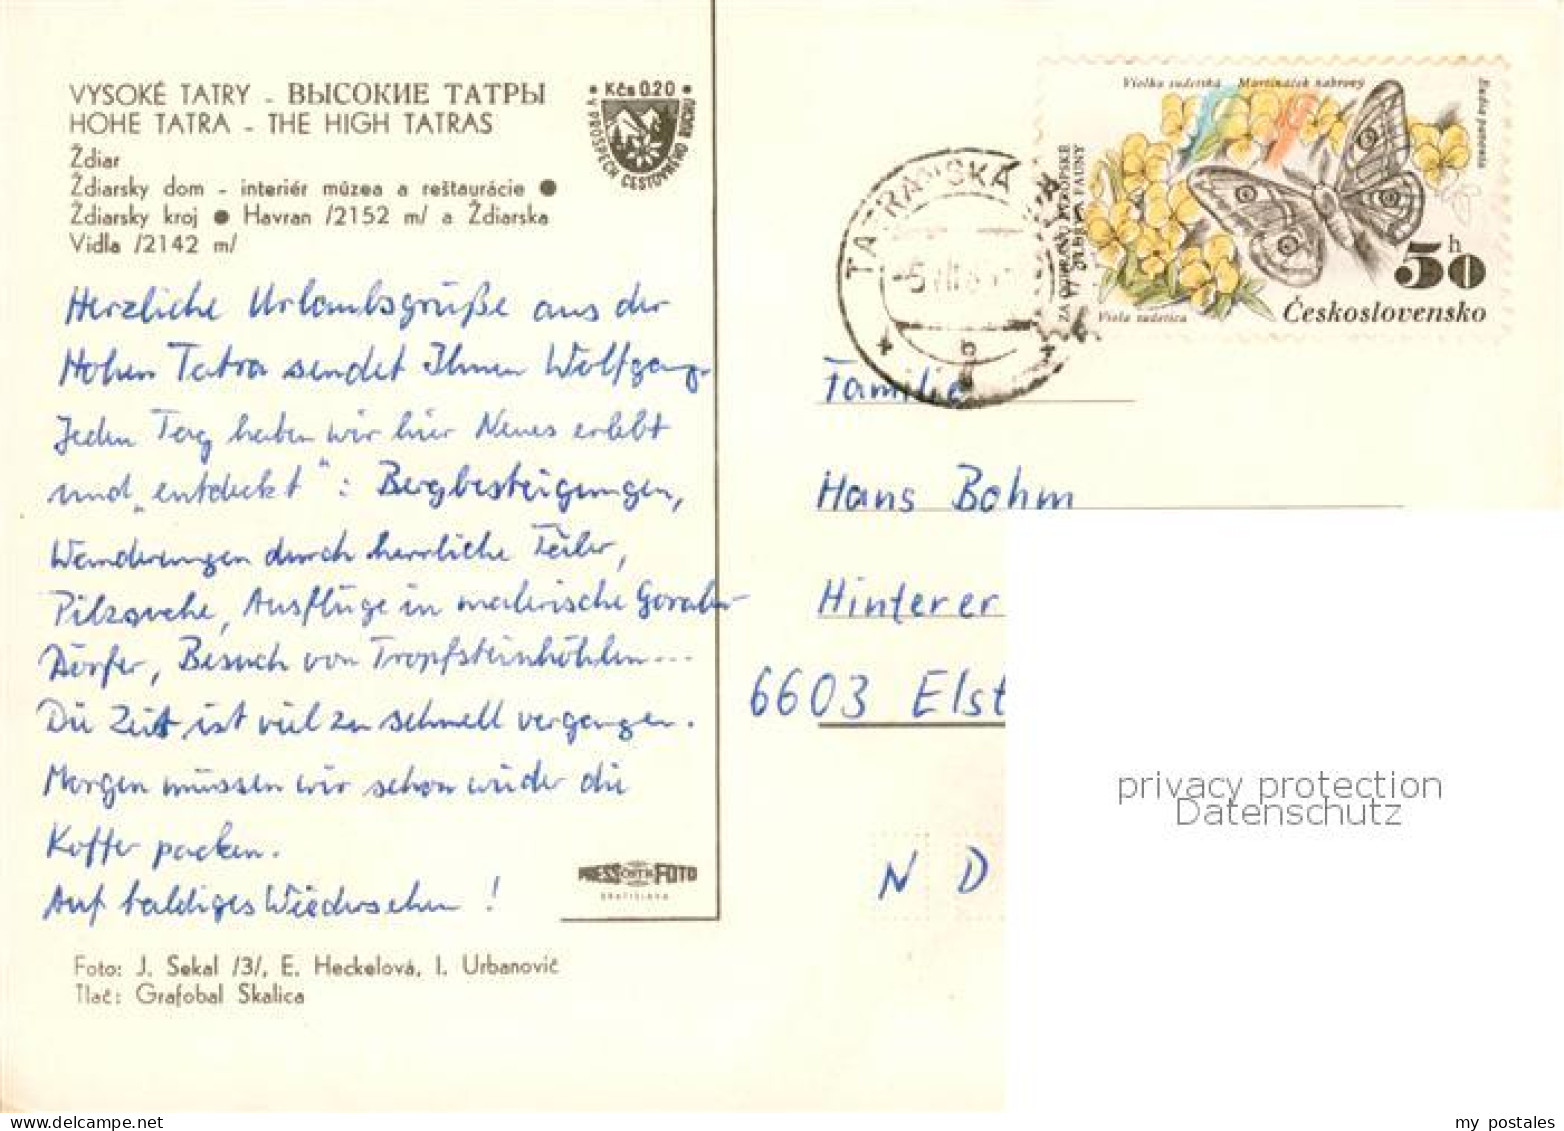 VYSOKÉ TATRY - ВЫСОКИЕ ТАТРЫ
HOHE TATRA - THE HIGH TATRAS
Ždiar
Ždiarsky dom - interiér múzea a reštaurácie ●
Ždiarsky kroj ● Havran /2152 m/ a Ždiarska
Vidla /2142 m/
• Kčs 0.20 •
V PROSPECH CESTOVNÉHO RUCHU
Herzliche Urlaubsgrüße aus der
Hohen Tatra sendet Ihnen Wolfgang.
Jeden Tag haben wir hier Neues erlebt
und „entdeckt": Bergbesteigungen,
Wanderungen durch herrliche Täler,
Pilzsuche, Ausflüge in malerische Goralen-
Dörfer, Besuch von Tropfsteinhöhlen...
Die Zeit ist viel zu schnell vergangen.
Morgen müssen wir schon wieder die
Koffer packen.
Auf baldiges Wiedersehen!
PRESSFOTO
BRATISLAVA
Foto: J. Sekal /3/, E. Heckelová, I. Urbanovič
Tlač: Grafobal Skalica
TATRANSKÁ
b
Violka sudetská Martináček nabrový
ZA OCHRANU EVROPSKÉ
FAUNY
Viola sudetica
50 h
Československo
Familie
Hans Bohm
Hinterer
6603 Elst
N D
privacy protection
Datenschutz
delcampe.net
my_postales